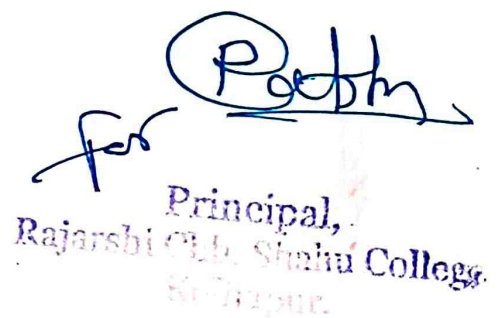 for
Principal,
Rajarshi Chh. Shahu College,
Kolhapur.